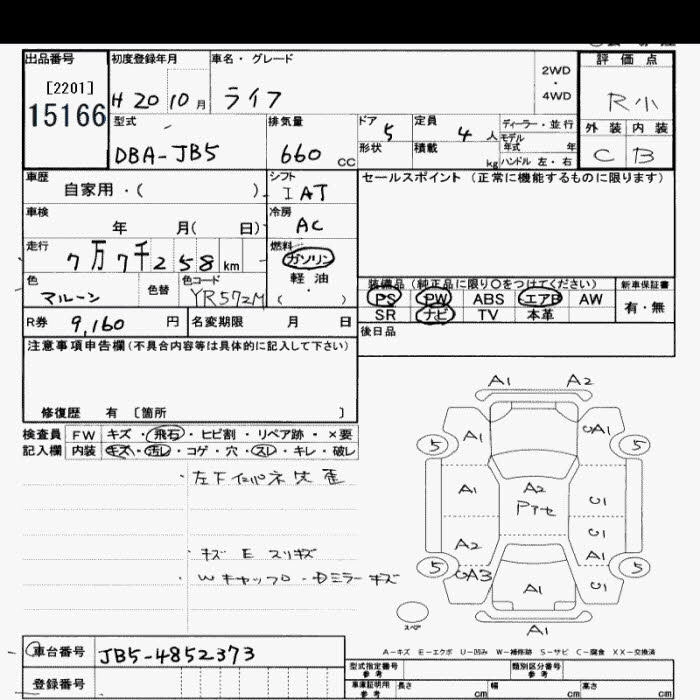 出品番号 初度登録年月 車名・グレード 評価点
[2201] 2WD
・
15166 H 20 10 月 ライフ 4WD R小
型式 排気量 ドア 5 定員 4 人 ディーラー・並行 外装 内装
モデル
年式 年
DBA-JB5 660 CC 形状 積載 kg ハンドル 左・右 C B
車歴 自家用・( ) シフト I AT セールスポイント (正常に機能するものに限ります)
車検 年 月( 日) 冷房 AC
走行 7万7千258 km 燃料 ガソリン
軽油
色 マルーン 色替 色コード YR572M ( ) 装備品 (純正品に限り○をつけてください) 新車保証書
PS PW ABS エアB AW 有・無
R券 9,160 円 名変期限 月 日 SR ナビ TV 本革
後日品
注意事項申告欄(不具合内容等は具体的に記入して下さい)
修復歴 有 〔箇所 〕
検査員 FW キズ・飛石・ヒビ割・リペア跡・×要
記入欄 内装 キズ・汚レ・コゲ・穴・スレ・キレ・破レ
A1 A2
A1 UA1
5 5
A1 A2 U1
Pアセ
A2 U1
A1
5 UA3 A1 U1 5
A1
・キズ E スリキズ
・Wキャップ
スペア
A-キズ E-エクボ U-凹み W-補修跡 S-サビ C-腐食 XX-交換済
車台番号 JB5-4852373
登録番号
型式指定番号 参考 類別区分番号 参考
車庫証明用 参考 長さ cm 幅 cm 高さ cm